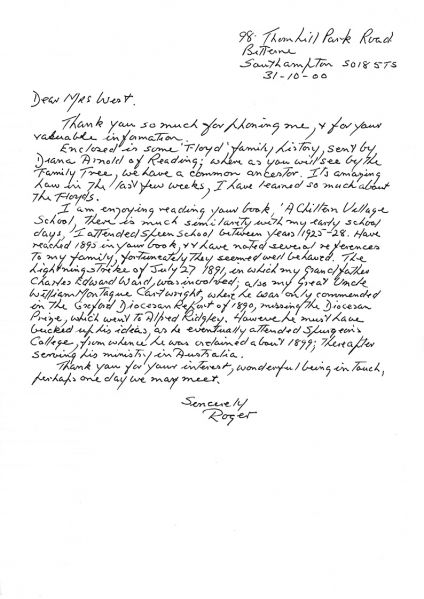 98. Thornhill Park Road
Bitterne
Southampton SO18 5TS
31-10-00
Dear Mrs West.
Thank you so much for phoning me, & for your
valuable information.
Enclosed is some 'Floyd' family history, sent by
Diana Arnold of Reading; where as you will see by the
Family Tree, we have a common ancestor. It's amazing
how in the last few weeks, I have learned so much about
the Floyds.
I am enjoying reading your book, 'A Chilton Village
School, there is much similarity with my early school
days, I attended Speen School between years 1925-28. Have
reached 1895 in your book, & have noted several references
to my family, fortunately they seemed well behaved. The
lightning strike of July 27 1891, in which my Grandfather
Charles Edward Ward, was involved; also my Great Uncle
William Montague Cartwright, where he was only commended
in the Oxford Diocesan Report of 1890, missing the Diocesan
Prize, which went to Alfred Ridgley. However he must have
bucked up his ideas, as he eventually attended Spurgeon's
College, from where he was ordained about 1899; thereafter
serving his ministry in Australia.
Thank you for your interest, wonderful being in touch,
perhaps one day we may meet.
Sincerely
Roger